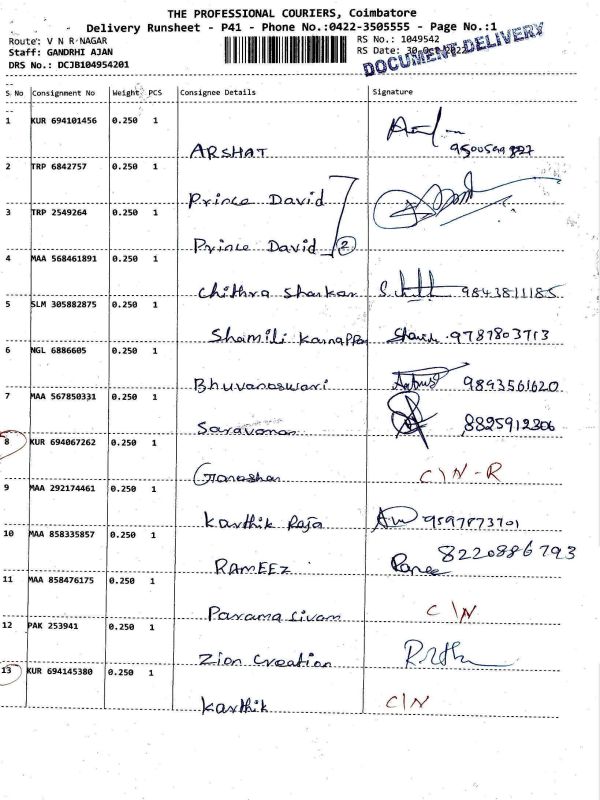 THE PROFESSIONAL COURIERS, Coimbatore
Delivery Runsheet - P41 - Phone No.:0422-3505555 - Page No.:1
Route: V N R NAGAR
RS No.: 1049542
Staff: GANDRHI AJAN
RS Date: 30-Oct-2022
DOCUMENT-DELIVERY
DRS No.: DCJB104954201
S No Consignment No Weight PCS Consignee Details Signature
1 KUR 694101456 0.250 1
ARSHAT 9500599827
2 TRP 6842757 0.250 1
Prince David
3 TRP 2549264 0.250 1
Prince David 2
4 MAA 568461891 0.250 1
Chithra Shankar 9843811185
5 SLM 305882875 0.250 1
Shamili 9787803713
6 NGL 6886605 0.250 1
Bhuvaneswari 9893561620
7 MAA 567850331 0.250 1
Saravanan 8825912306
8 KUR 694067262 0.250 1
Ganeshan C\N-R
9 MAA 292174461 0.250 1
Karthik Raja 9597773701
10 MAA 858335857 0.250 1
RAMEEZ 8220886793
11 MAA 858476175 0.250 1
Parama sivam C\N
12 PAK 253941 0.250 1
Zion Creation
13 KUR 694145380 0.250 1
Karthik C\N